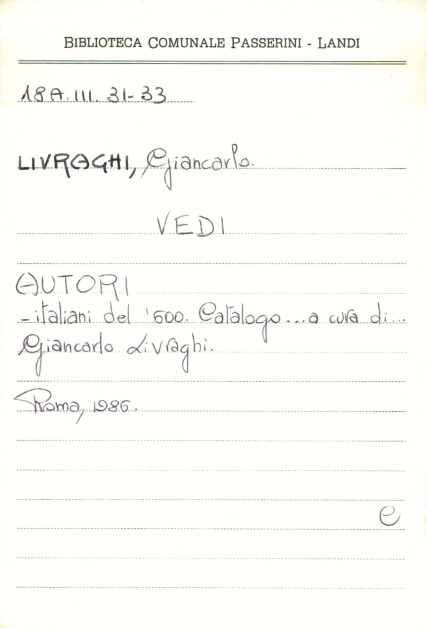 BIBLIOTECA COMUNALE PASSERINI - LANDI
18A.III. 31-33
LIVRAGHI, Giancarlo.
VEDI
AUTORI
- italiani del '600. Catalogo... a cura di...
Giancarlo Livraghi.
Roma, 1986.
e